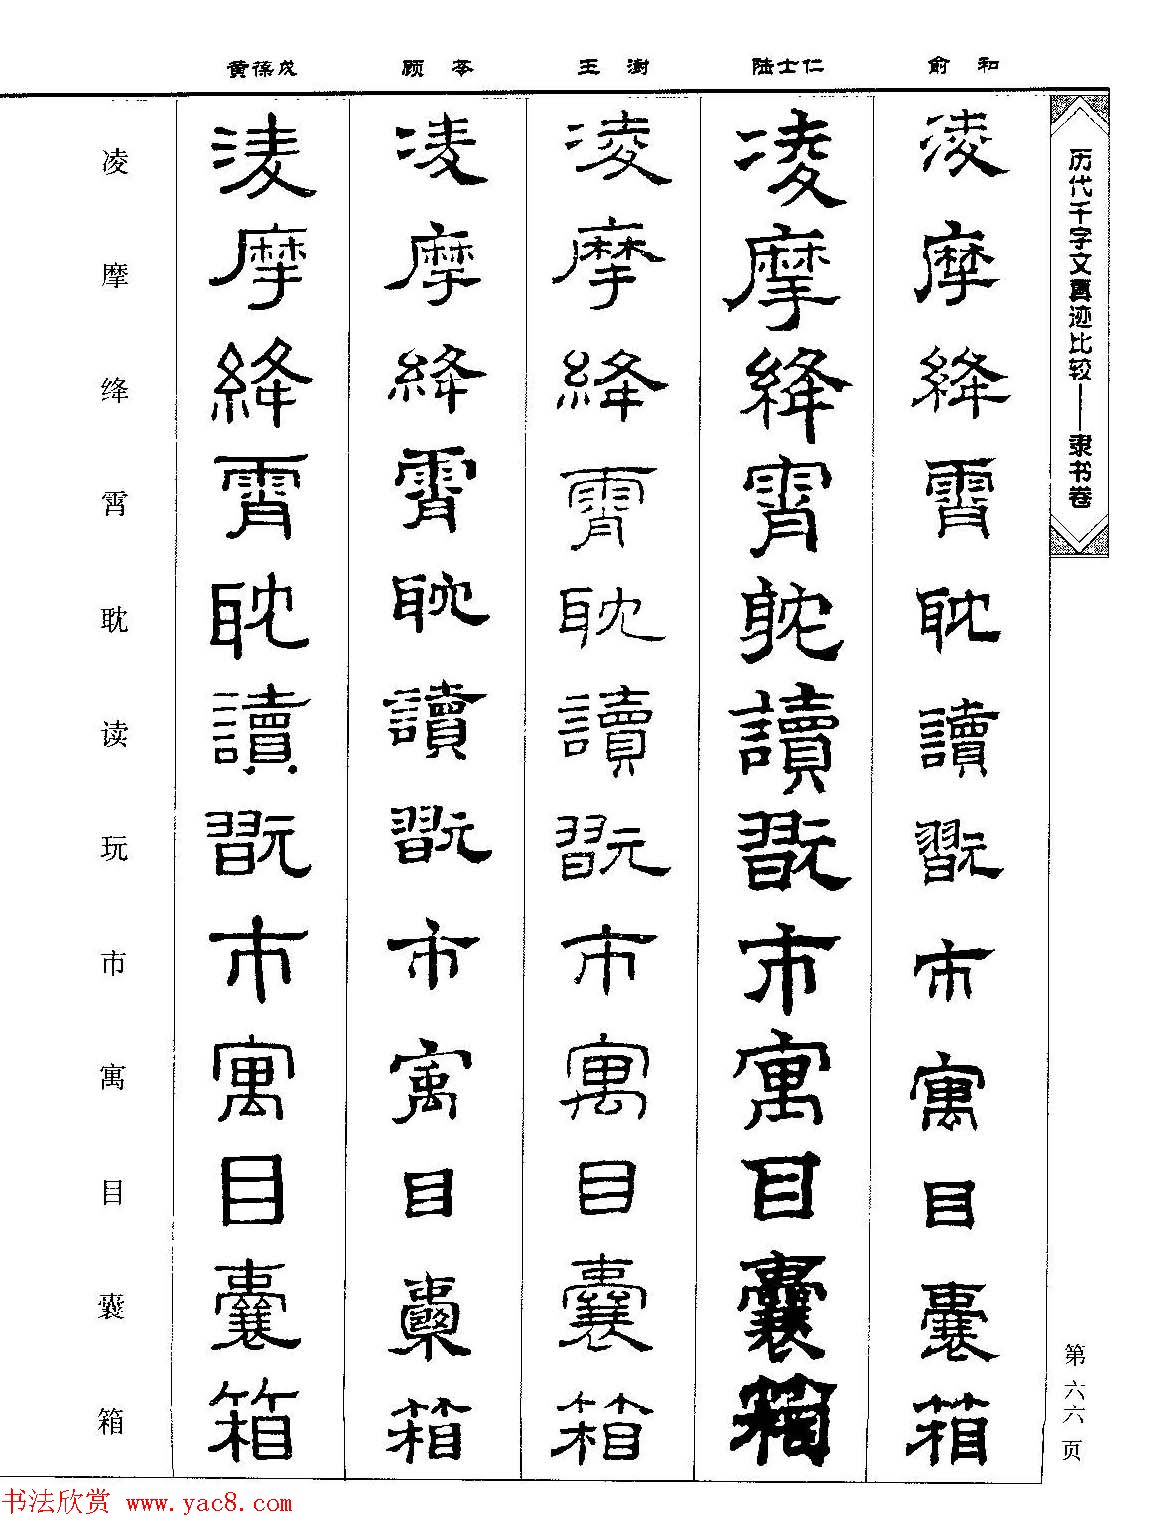 黄葆戉 顾苓 王澍 陆士仁 俞和
历代千字文真迹比较——隶书卷
凌 淩 淩 淩 淩 淩
摩 摩 摩 摩 摩 摩
绛 絳 絳 絳 絳 絳
霄 霄 霄 霄 霄 霄
耽 耽 耽 耽 躭 耽
读 讀 讀 讀 讀 讀
玩 翫 翫 翫 翫 翫
市 市 市 市 市 市
寓 寓 寓 寓 寓 寓
目 目 目 目 目 目
囊 囊 囊 囊 囊 囊
箱 箱 箱 箱 箱 箱
第六六页
书法欣赏 www.yac8.com